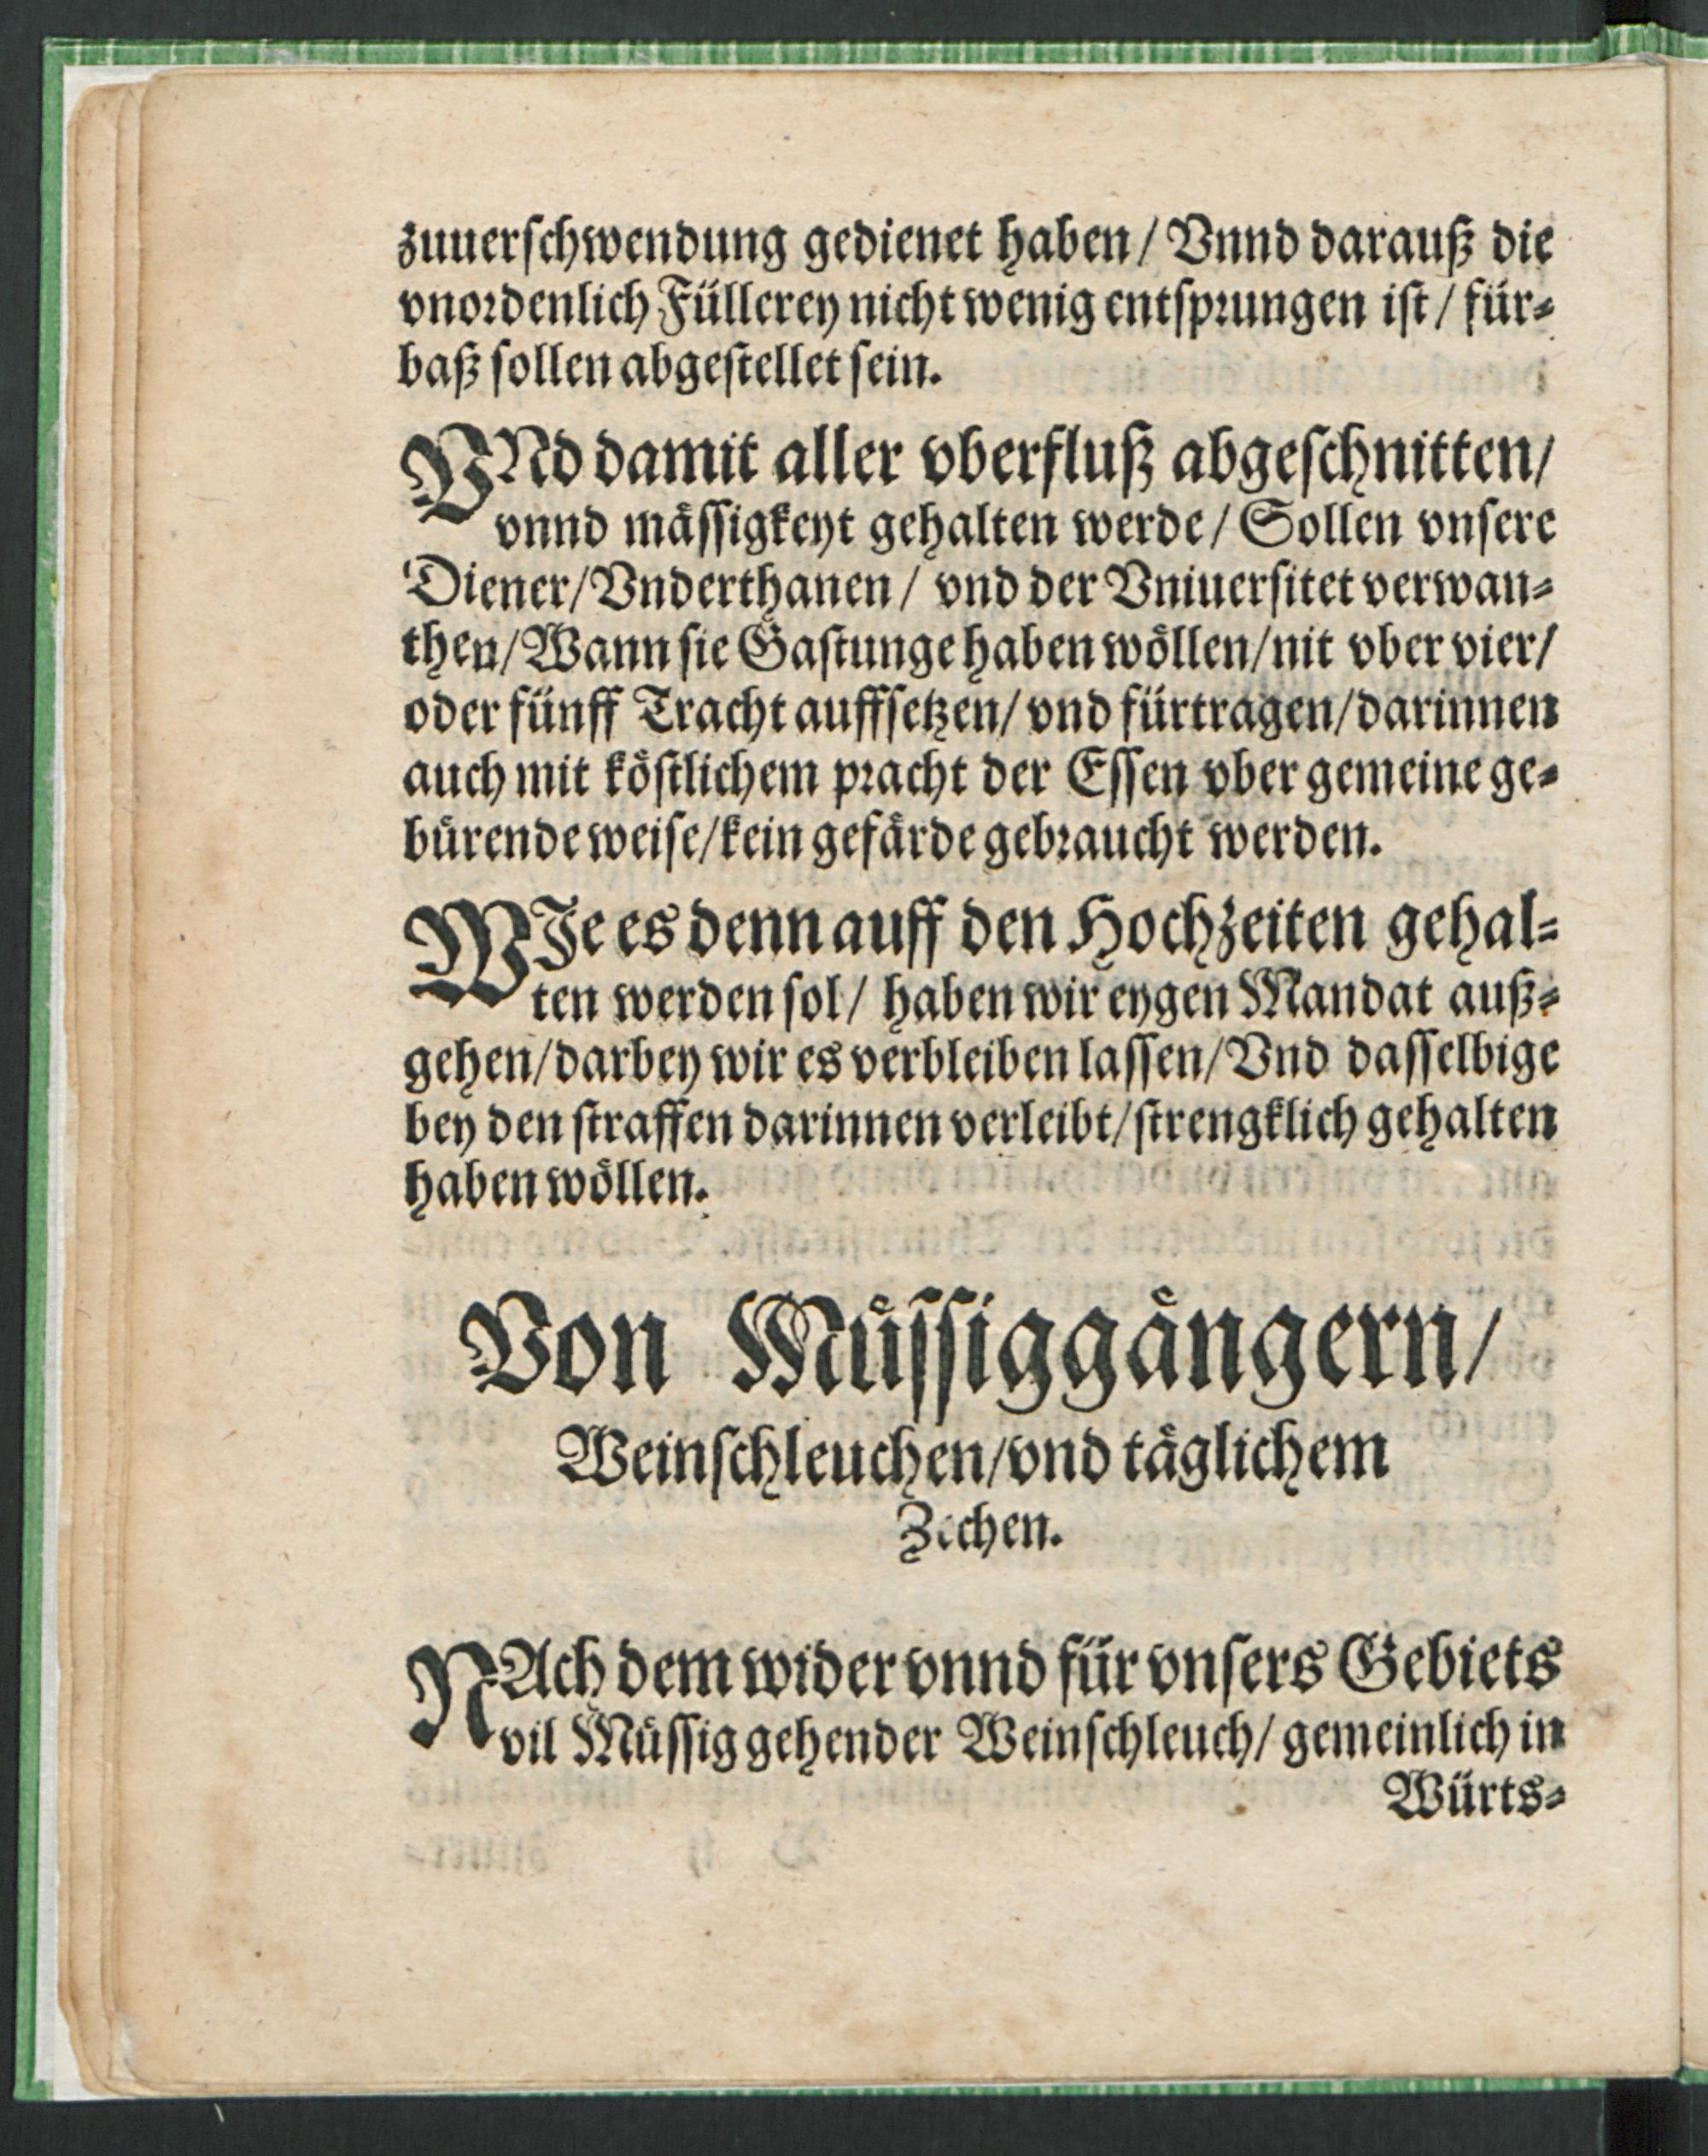 zuuerschwendung gedienet haben / Vnnd darauß die
vnordenlich Füllerey nicht wenig entsprungen ist / für⸗
baß sollen abgestellet sein.
VNd damit aller vberfluß abgeschnitten/
vnnd mässigkeyt gehalten werde / Sollen vnsere
Diener/Vnderthanen / vnd der Vniuersitet verwan⸗
then/Wann sie Gastunge haben wöllen/nit vber vier/
oder fünff Tracht auffsetzen/ vnd fürtragen/darinnen
auch mit köstlichem pracht der Essen vber gemeine ge⸗
bürende weise/kein gefärde gebraucht werden.
WJe es denn auff den Hochzeiten gehal⸗
ten werden sol/ haben wir eygen Mandat auß⸗
gehen/darbey wir es verbleiben lassen/Vnd dasselbige
bey den straffen darinnen verleibt/strengklich gehalten
haben wöllen.
Von Müssiggängern/
Weinschleuchen/vnd täglichem
Zechen.
NAch dem wider vnnd für vnsers Gebiets
vil Müssig gehender Weinschleuch/ gemeinlich in
Würts⸗